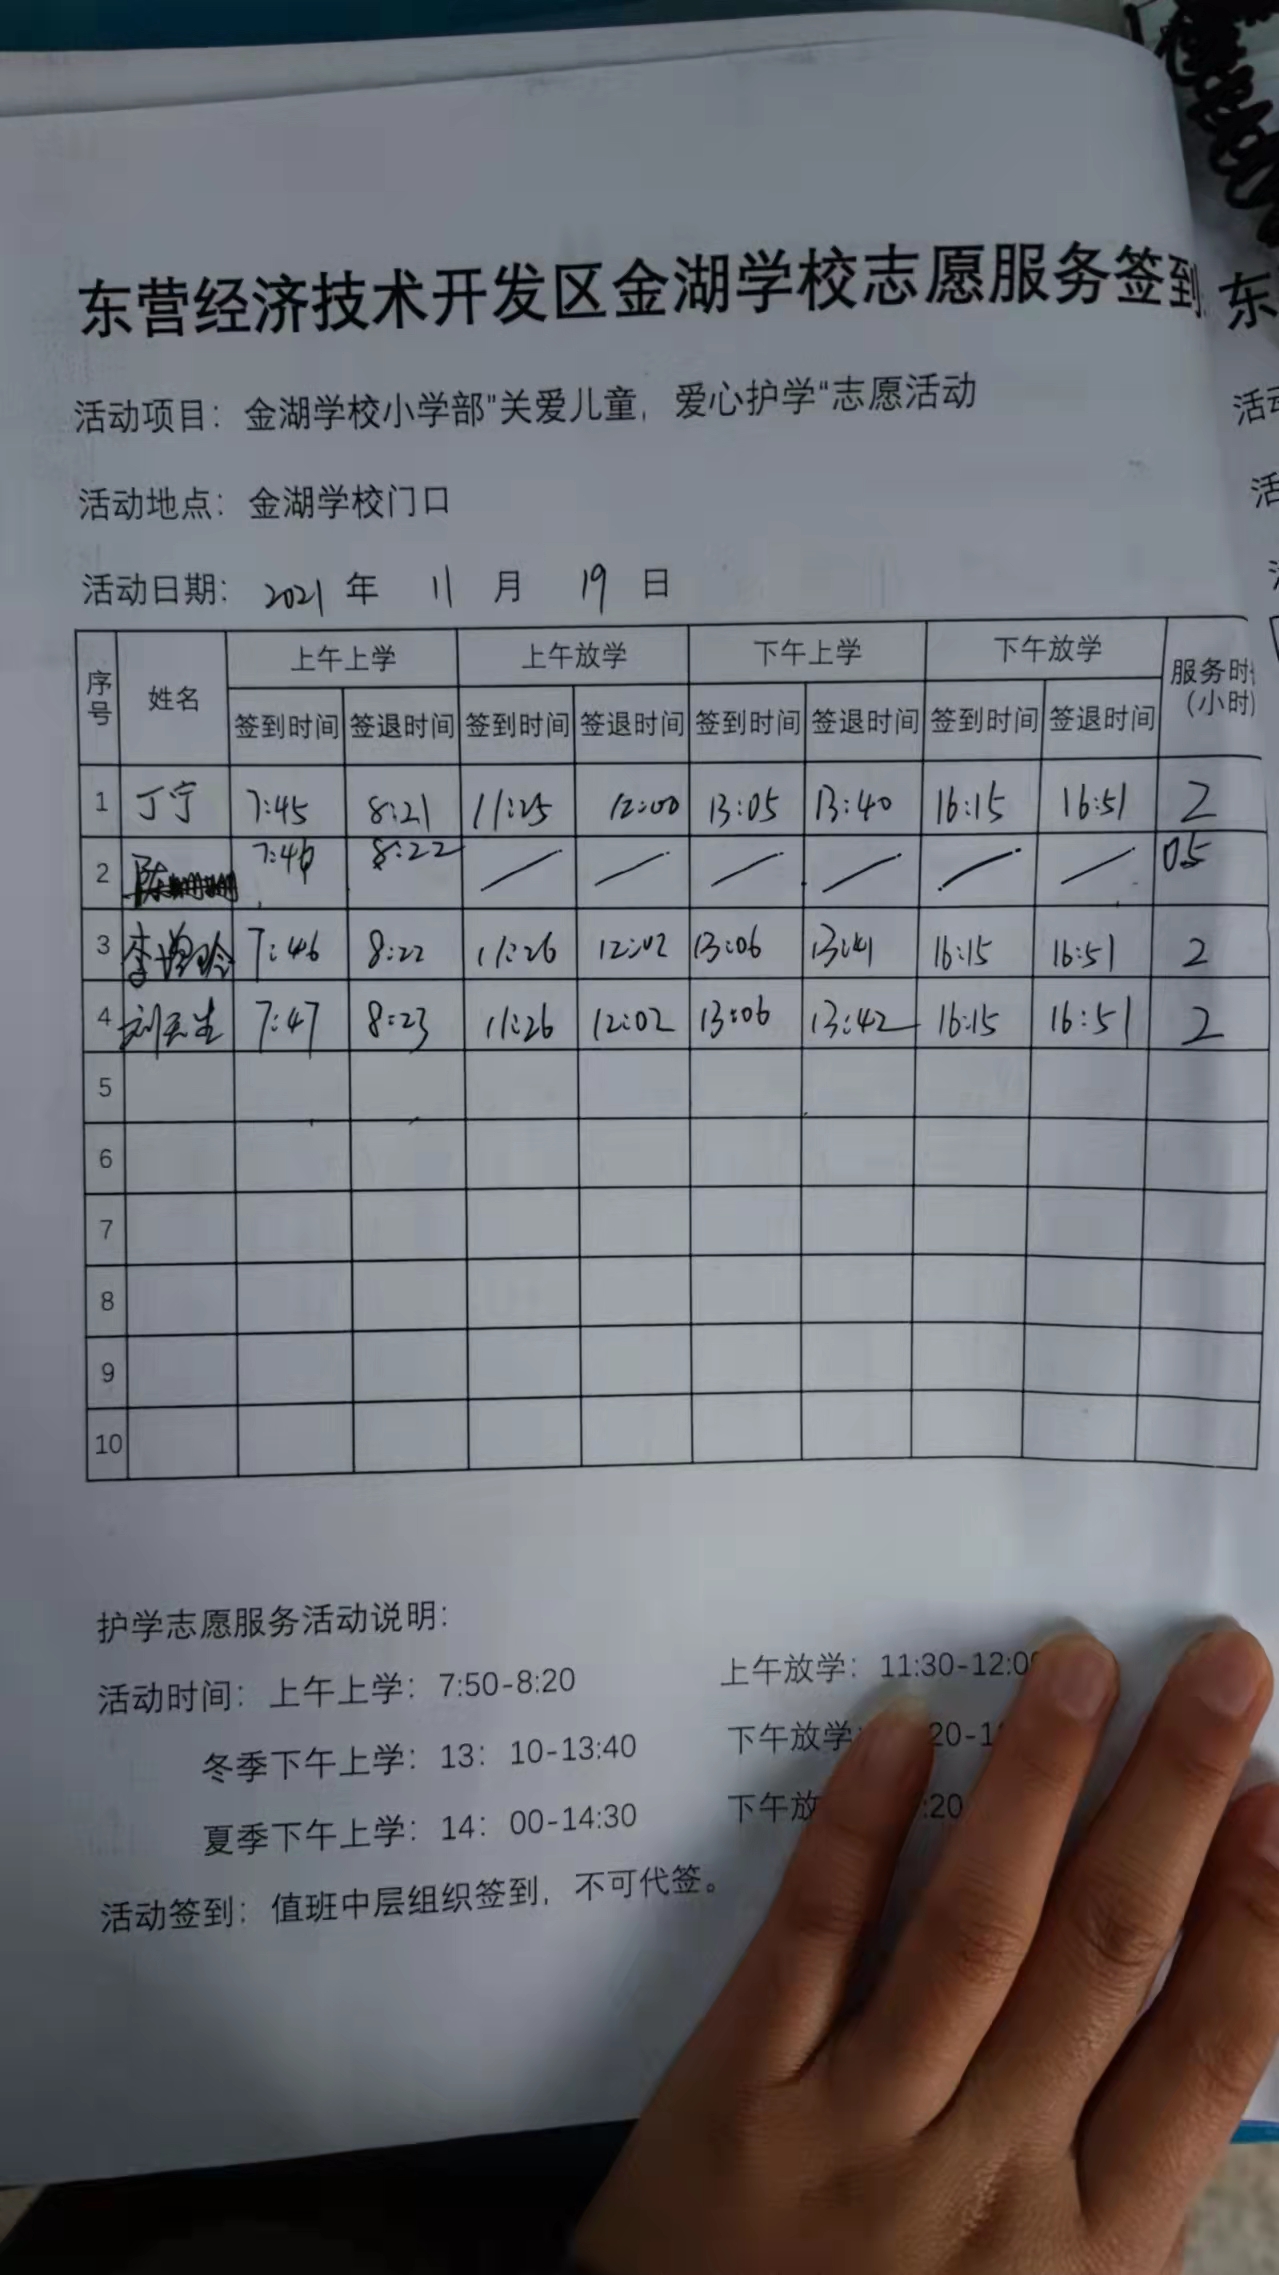 东营经济技术开发区金湖学校志愿服务签到 东
活动项目：金湖学校小学部"关爱儿童，爱心护学"志愿活动
活动地点：金湖学校门口
活动日期： 2021 年 11 月 19 日
序号 姓名 上午上学 上午放学 下午上学 下午放学 服务时 (小时)
签到时间 签退时间 签到时间 签退时间 签到时间 签退时间 签到时间 签退时间
1 丁宁 7:45 8:21 11:25 12:00 13:05 13:40 16:15 16:51 2
2 陈 7:46 8:22 / / / / / / 0.5
3 李 7:46 8:22 11:26 12:02 13:06 13:41 16:15 16:51 2
4 刘 生 7:47 8:23 11:26 12:02 13:06 13:42 16:15 16:51 2
5
6
7
8
9
10
护学志愿服务活动说明：
活动时间：上午上学：7:50-8:20 上午放学：11:30-12:00
冬季下午上学：13：10-13:40 下午放学 20-1
夏季下午上学：14：00-14:30 下午放 :20
活动签到：值班中层组织签到，不可代签。